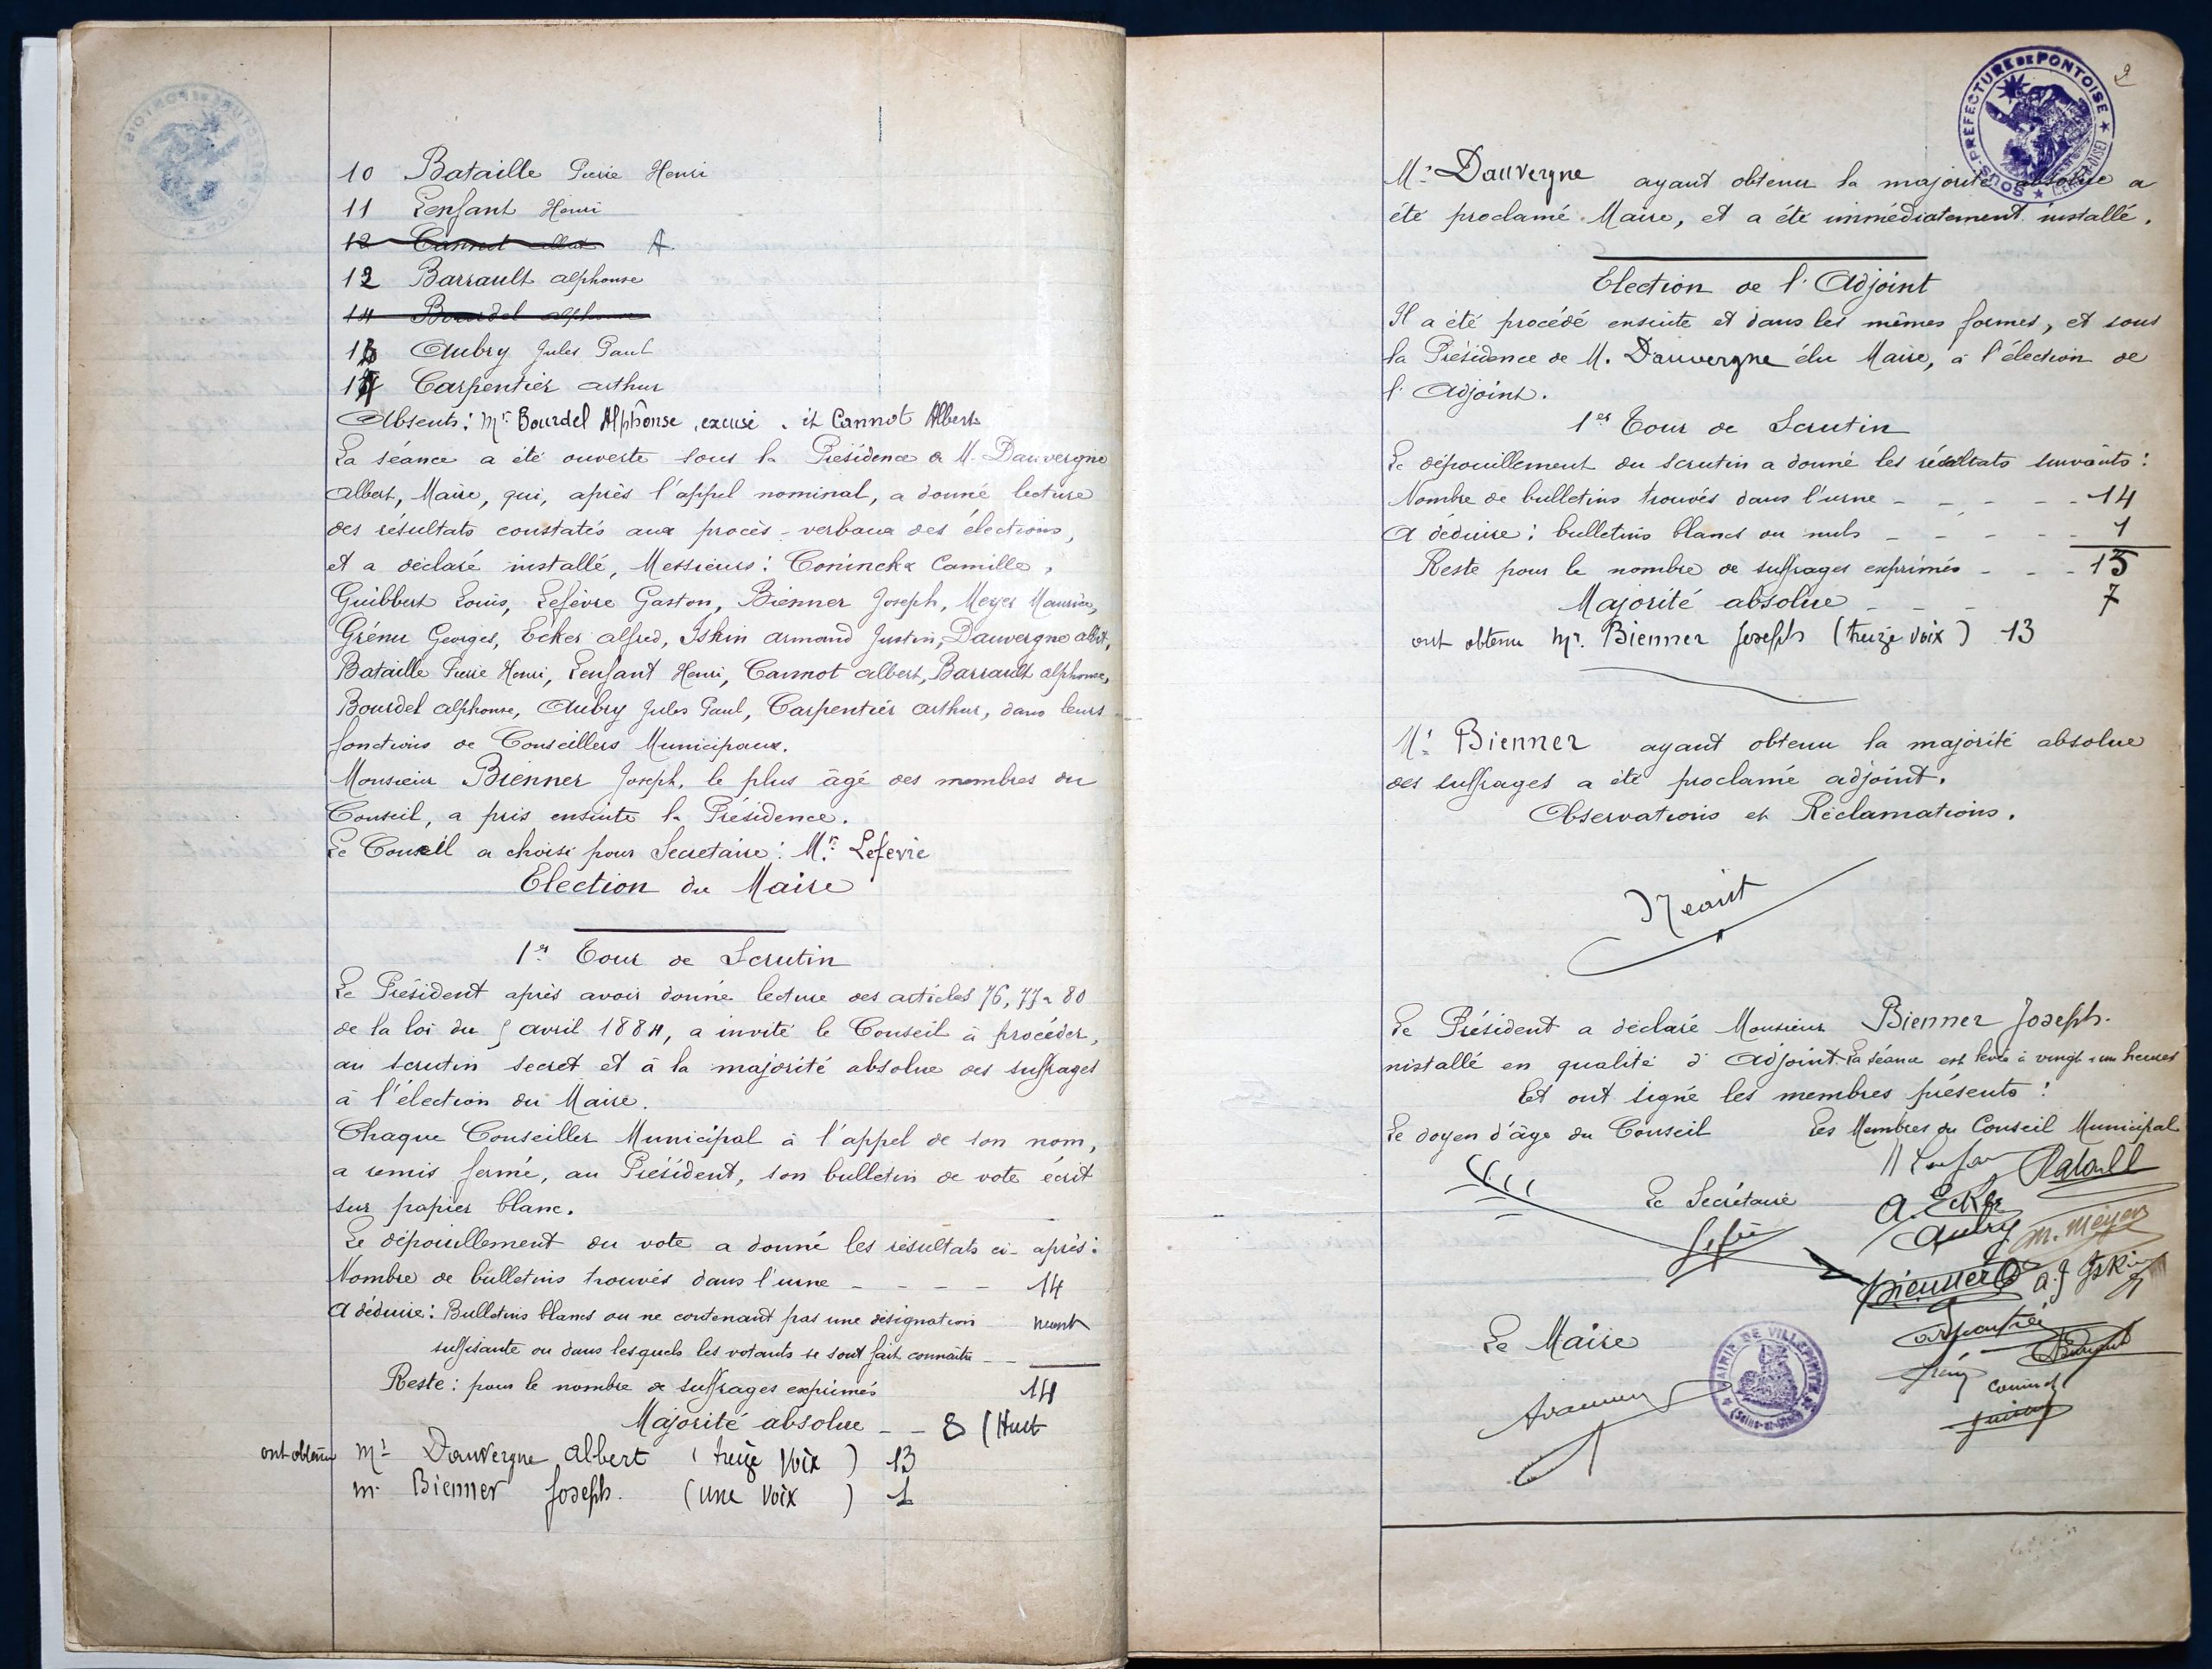 10 Bataille Pierre Henri
11 Lenfant Henri
12 Cannot Albert A
12 Barrault Alphonse
14 Bourdel Alphonse
13 Aubry Jules Paul
14 Carpentier Arthur
Absents : Mr Bourdel Alphonse, excusé. et Cannot Albert
La séance a été ouverte sous la Présidence de M. Dauvergne
Albert, Maire, qui, après l'appel nominal, a donné lecture
des résultats constatés aux procès-verbaux des élections,
et a déclaré installé, Messieurs : Coninckx Camille,
Guibbert Louis, Lefèvre Gaston, Bienner Joseph, Meyer Maurice,
Grénu Georges, Ecker Alfred, Iskin Armand Justin, Dauvergne Albt,
Bataille Pierre Henri, Lenfant Henri, Cannot Albert, Barrault Alphonse,
Bourdel Alphonse, Aubry Jules Paul, Carpentier Arthur, dans leurs
fonctions de Conseillers Municipaux.
Monsieur Bienner Joseph, le plus âgé des membres du
Conseil, a pris ensuite la Présidence.
Le Conseil a choisi pour Secretaire : Mr Lefevre
Election du Maire
1er Tour de Scrutin
Le Président après avoir donné lecture des articles 76, 77 à 80
de la loi du 5 avril 1884, a invité le Conseil à procéder,
au scrutin secret et à la majorité absolue des suffrages
à l'élection du Maire.
Chaque Conseiller Municipal à l'appel de son nom,
a remis fermé, au Président, son bulletin de vote écrit
sur papier blanc.
Le dépouillement du vote a donné les résultats ci-après :
Nombre de bulletins trouvés dans l'urne - - - - 14
A déduire : Bulletins blancs ou ne contenant pas une désignation néant
suffisante ou dans lesquels les votants se sont fait connaître - -
Reste : pour le nombre de suffrages exprimés 14
Majorité absolue - - 8 (Huit
ont obtenu Mr Dauvergne Albert (treize voix) 13
M. Bienner Joseph. (une voix) 1
SOUS-PRÉFECTURE DE PONTOISE
2
Mr Dauvergne ayant obtenu la majorité absolue a
été proclamé Maire, et a été immédiatement installé.
Election de l'Adjoint
Il a été procédé ensuite et dans les mêmes formes, et sous
la Présidence de M. Dauvergne élu Maire, à l'élection de
l'Adjoint.
1er Tour de Scrutin
Le dépouillement du scrutin a donné les résultats suivants :
Nombre de bulletins trouvés dans l'urne - - - - - 14
A déduire : bulletins blancs ou nuls - - - - - 1
Reste pour le nombre de suffrages exprimés - - - 13
Majorité absolue - - - 7
ont obtenu Mr. Bienner Joseph (treize voix) 13
Mr Bienner ayant obtenu la majorité absolue
des suffrages a été proclamé adjoint.
Observations et Réclamations.
Néant
Le Président a déclaré Monsieur Bienner Joseph.
installé en qualité d'Adjoint. La séance est levée à vingt et une heures
Et ont signé les membres présents :
Le doyen d'âge du Conseil Les Membres du Conseil Municipal
Bataille
Le Secrétaire A. Ecker
Aubry M. Meyer
Bienner A. J Iskin
Carpentier
Le Maire
MAIRIE DE VILLEPINTE